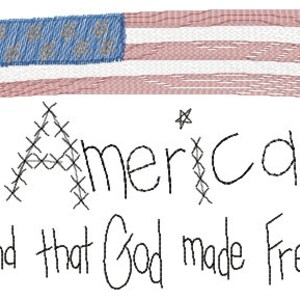 America
nd that God made Fre